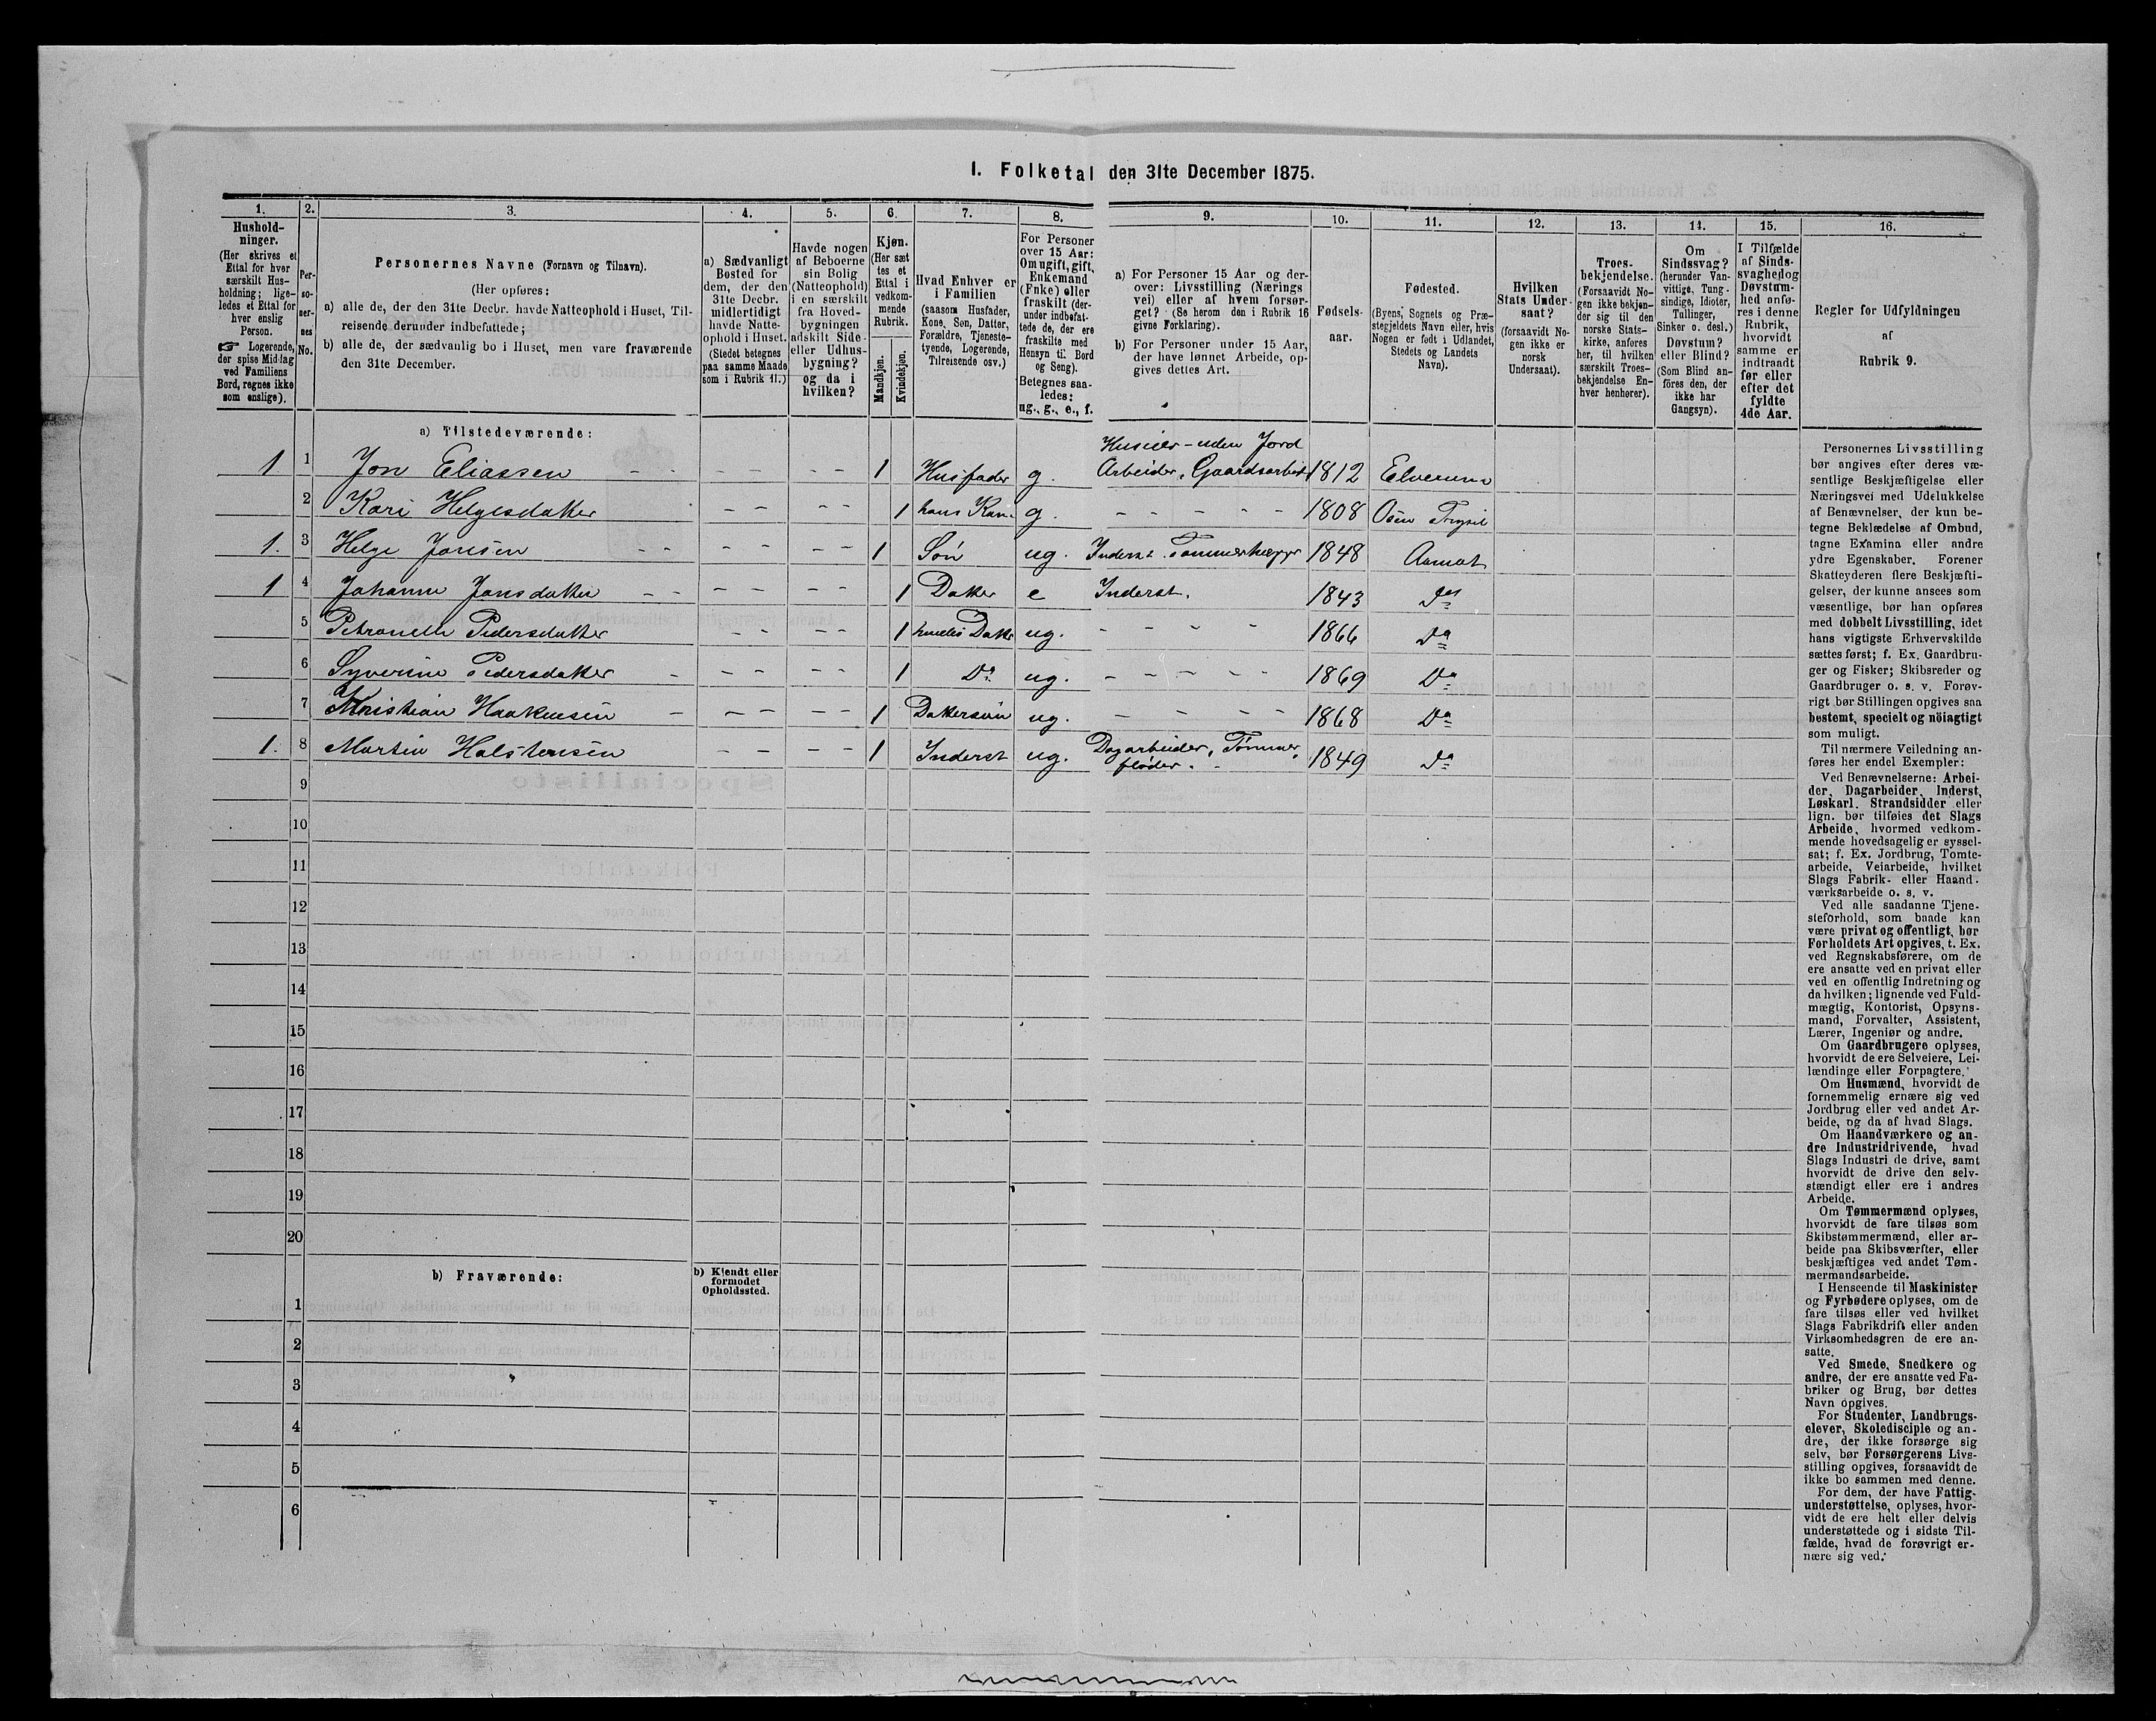 1. Folketal den 31te December 1875.
1.
2.
3.
4.
5.
6.
7.
8.
9.
10.
11.
12.
13.
14.
15.
16.
Hushold-
ninger.
(Her skrives et
Ettal for hver
særskilt Hus-
holdning; lige-
ledes et Ettal for
hver enslig
Person.
☞ Logerende,
der spise Middag
ved Familiens
Bord, regnes ikke
som enslige).
Per-
so-
ner-
nes
No.
Personernes Navne (Fornavn og Tilnavn).
(Her opføres:
a) alle de, der den 31te Decbr. havde Natteophold i Huset, Til-
reisende derunder indbefattede;
b) alle de, der sædvanlig bo i Huset, men vare fraværende
den 31te December.
a) Sædvanligt
Bosted for
dem, der den
31te Decbr.
midlertidigt
havde Natte-
ophold i Huset.
(Stedet betegnes
paa samme Maade
som i Rubrik 11.)
Havde nogen
af Beboerne
sin Bolig
(Natteophold)
i en særskilt
fra Hoved-
bygningen
adskilt Side-
eller Udhus-
bygning?
og da i
hvilken?
Kjøn.
(Her sæt
tes et
Ettal i
vedkom-
mende
Rubrik.
Mandkjøn.
Kvindekjøn.
Hvad Enhver er
i Familien
(saasom Husfader,
Kone, Søn, Datter,
Forældre, Tjeneste-
tyende, Logerende,
Tilreisende osv.)
For Personer
over 15 Aar:
Om ugift, gift,
Enkemand
(Enke) eller
fraskilt (der-
under indbefat-
tede de, der ere
fraskilte med
Hensyn til Bord
og Seng).
Betegnes saa-
ledes:
ug., g., e., f.
a) For Personer 15 Aar og der-
over: Livsstilling (Nærings
vei) eller af hvem forsør-
get? (Se herom den i Rubrik 16
givne Forklaring).
b) For Personer under 15 Aar,
der have lønnet Arbeide, op-
gives dettes Art.
Fødsels-
aar.
Fødested.
(Byens, Sognets og Præ-
stegjeldets Navn eller, hvis
Nogen er født i Udlandet,
Stedets og Landets
Navn).
Hvilken
Stats Under-
saat?
(forsaavidt No-
gen ikke er
norsk
Undersaat).
Troes-
bekjendelse.
(Forsaavidt No-
gen ikke bekjen-
der sig til den
norske Stats-
kirke, anføres
her, til hvilken
særskilt Troes-
bekjendelse En-
hver henhører).
Om
Sindssvag?
(herunder Van-
vittige, Tung-
sindige, Idioter,
Tullinger,
Sinker o. desl.)
Døvstum?
eller Blind?
(Som Blind an-
føres den, der
ikke har
Gangsyn).
I Tilfælde
af Sinds-
svaghed og
Døvstum-
hed anfø-
res i denne
Rubrik,
hvorvidt
samme er
indtraadt
før eller
efter det
fyldte
4de Aar.
Regler for Udfyldningen
af
Rubrik 9.
a) Tilstedeværende:
Huseier - uden Jord
1 1 Jon Eliassen - - - - - - 1 Husfader g. Arbeider, Gaardsarbeid 1812 Elverum
2 Kari Helgesdatter - - - - 1 hans Kone g. - - - - - 1808 Osen Trysil
1. 3 Helge Jonsen - - - - - - 1 Søn ug. Inderst. Tømmerhugger 1848 Aamot
1 4 Johanne Jonsdatter - - - - - - 1 Datter e Inderst. 1843 Do
5 Petronelle Pedersdatter - - - - 1 hendes Datter ug. - - - - 1866 Do
6 Syverine Pedersdatter - - - - - 1 Do. ug. - - - - - 1869 Do
7 Kristian Haakensen - - - - - 1 Dattersøn ug. - - - - 1868 Do
1. 8 Martin Halstensen - - - - 1 Inderst ug. Dagarbeider, Tømmer-
fløder. 1849 Do
9
10
11
12
13
14
15
16
17
18
19
20
b) Fraværende:
b) Kjendt eller
formodet
Opholdssted.
1
2
3
4
5
6
Personernes Livsstilling
bør angives efter deres væ-
sentlige Beskjæftigelse eller
Næringsvei med Udelukkelse
af Benævnelser, der kun be-
tegne Beklædelse af Ombud,
tagne Examina eller andre
ydre Egenskaber. Forener
Skatteyderen flere Beskjæfti-
gelser, der kunne ansees som
væsentlige, bør han opføres
med dobbelt Livsstilling, idet
hans vigtigste Erhvervskilde
sættes først; f. Ex. Gaardbru-
ger og Fisker; Skibsreder og
Gaardbruger o. s. v. Forøv-
rigt bør Stillingen opgives saa
bestemt, specielt og nöiagtigt
som muligt.
Til nærmere Veiledning an-
føres her endel Exempler:
Ved Benævnelserne: Arbei-
der, Dagarbeider, Inderst,
Løskarl, Strandsidder eller
lign. bør tilføies det Slags
Arbeide, hvormed vedkom-
mende hovedsagelig er syssel-
sat; f. Ex. Jordbrug, Tomte-
arbeide, Veiarbeide, hvilket
Slags Fabrik- eller Haand-
værksarbeide o. s. v.
Ved alle saadanne Tjene-
steforhold, som baade kan
være privat og offentligt, bør
Forholdets Art opgives, t. Ex.
ved Regnskabsførere, om de
ere ansatte ved en privat eller
ved en offentlig Indretning og
da hvilken; lignende ved Fuld-
mægtig, Kontorist, Opsyns-
mand, Forvalter, Assistent,
Lærer, Ingeniør og andre.
Om Gaardbrugere oplyses,
hvorvidt de ere Selveiere, Lei-
lændinge eller Forpagtere.
Om Husmænd, hvorvidt de
fornemmelig ernære sig ved
Jordbrug eller ved andet Ar-
beide, og da af hvad Slags.
Om Haandværkere og an-
dre Industridrivende, hvad
Slags Industri de drive, samt
hvorvidt de drive den selv-
stændigt eller ere i andres
Arbeide.
Om Tømmermænd oplyses,
hvorvidt de fare tilsøs som
Skibstømmermænd, eller ar-
beide paa Skibsværfter, eller
beskjæftiges ved andet Tøm-
mermandsarbeide.
I Henseende til Maskinister
og Fyrbødere oplyses, om de
fare tilsøs eller ved hvilket
Slags Fabrikdrift eller anden
Virksomhedsgren de ere an-
satte.
Ved Smede, Snedkere og
andre, der ere ansatte ved Fa-
briker og Brug, bør dettes
Navn opgives.
For Studenter, Landbrugs-
elever, Skoledisciple og an-
dre, der ikke forsørge sig
selv, bør Forsørgerens Livs-
stilling opgives, forsaavidt de
ikke bo sammen med denne.
For dem, der have Fattig-
understøttelse, oplyses, hvor-
vidt de ere helt eller delvis
understøttede og i sidste Til-
fælde, hvad de forøvrigt er-
nære sig ved.